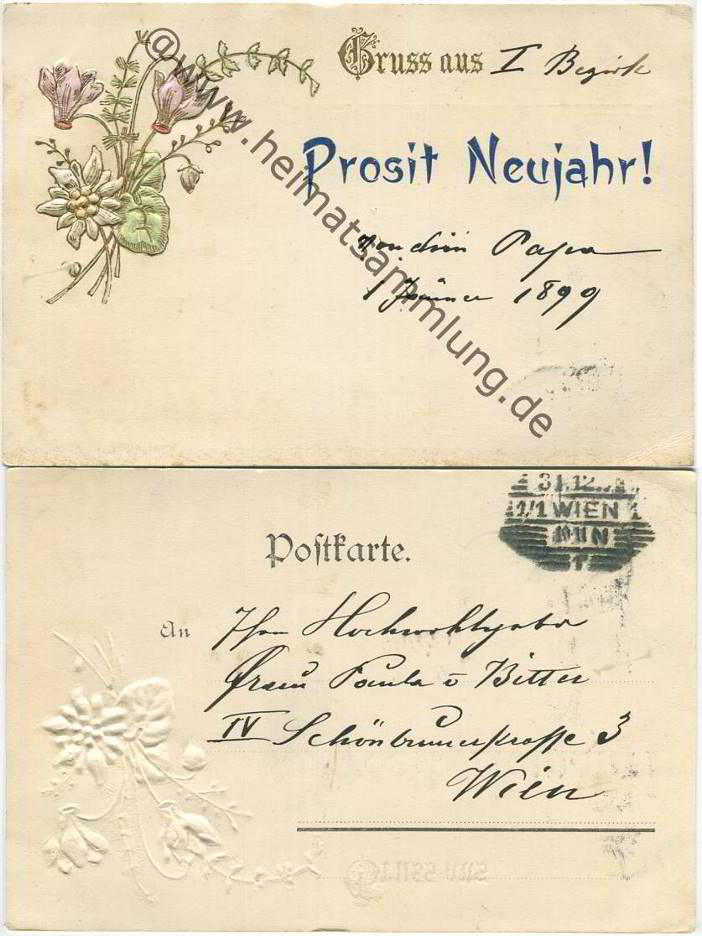 Gruss aus I Bezirk
Prosit Neujahr!
von dein Papa
Jänner 1899
@www.heimatsammlung.de
31.12.
1/1 WIEN 1
N
Postkarte.
An Ihre Hochwohlgebor
Frau Paula v Bitter
IV Schönbrunerstrasse 3
Wien